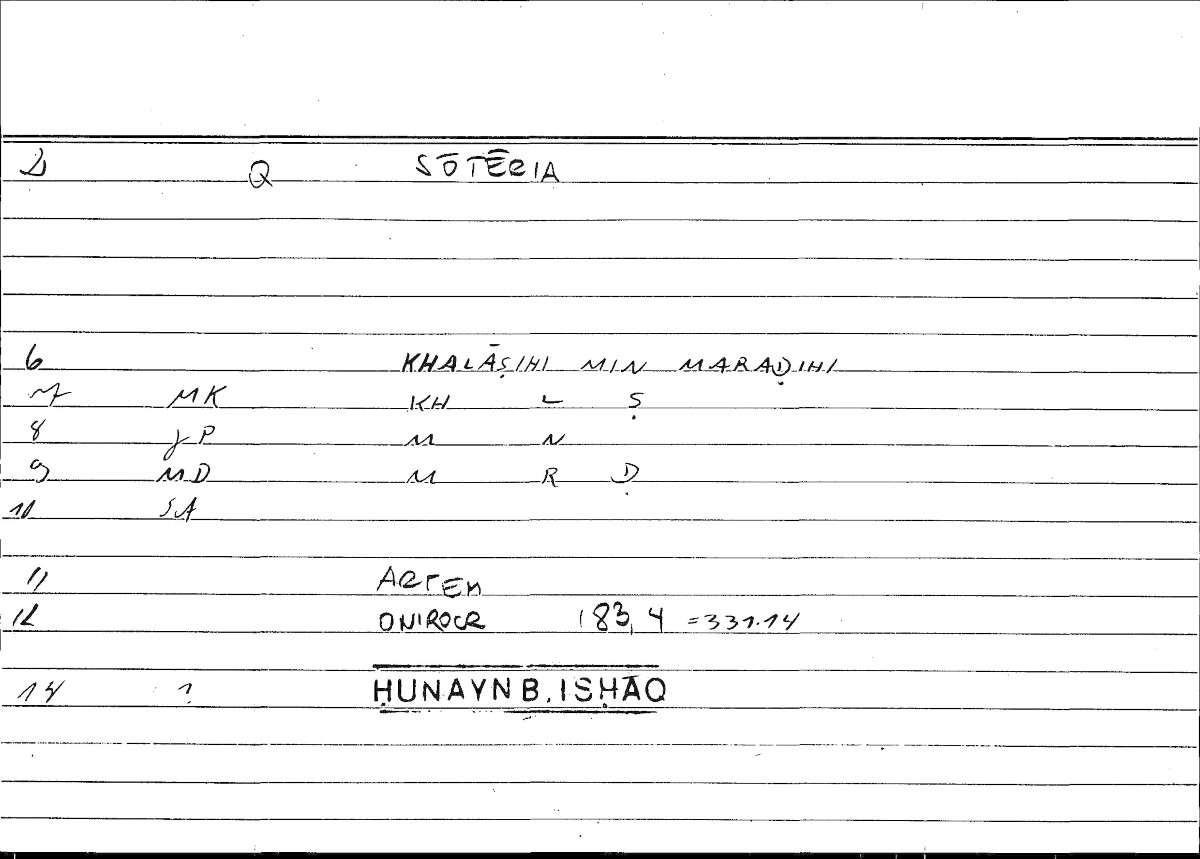 2 Q SŌTĒRIA
6 KHALĀṢIHI MIN MARAḌIHI
7 MK KH L Ṣ
8 JP M N
9 MD M R Ḍ
10 SA
11 ARTEM
12 ONIROCR 183,4 =331.14
14 ? ḤUNAYN B. ISḤĀQ